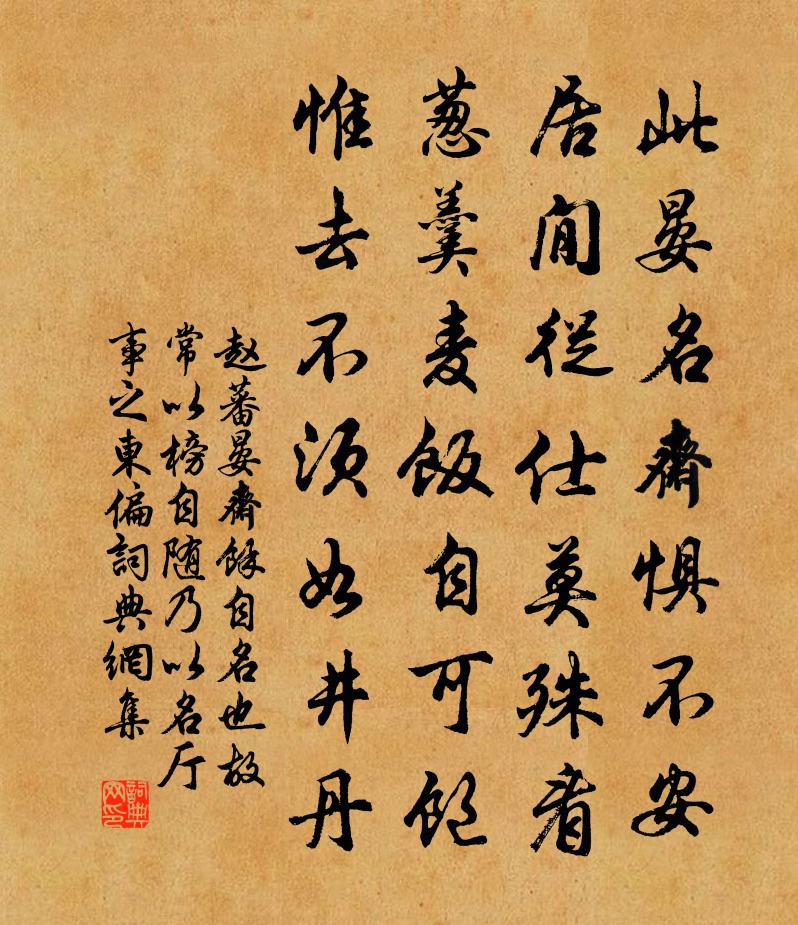 此晏名齋惧不安
居閒從仕莫殊看
葱羹麦飯自可飽
惟去不須如井丹
赵蕃晏齋餘自名也故
常以榜自随乃以名厅
事之東偏詞典網集
詞典网印